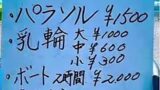 ・パラソル ¥1500
・乳輪 大 ¥1000
中 ¥600
小 ¥300
・ボート 2時間 ¥2,000